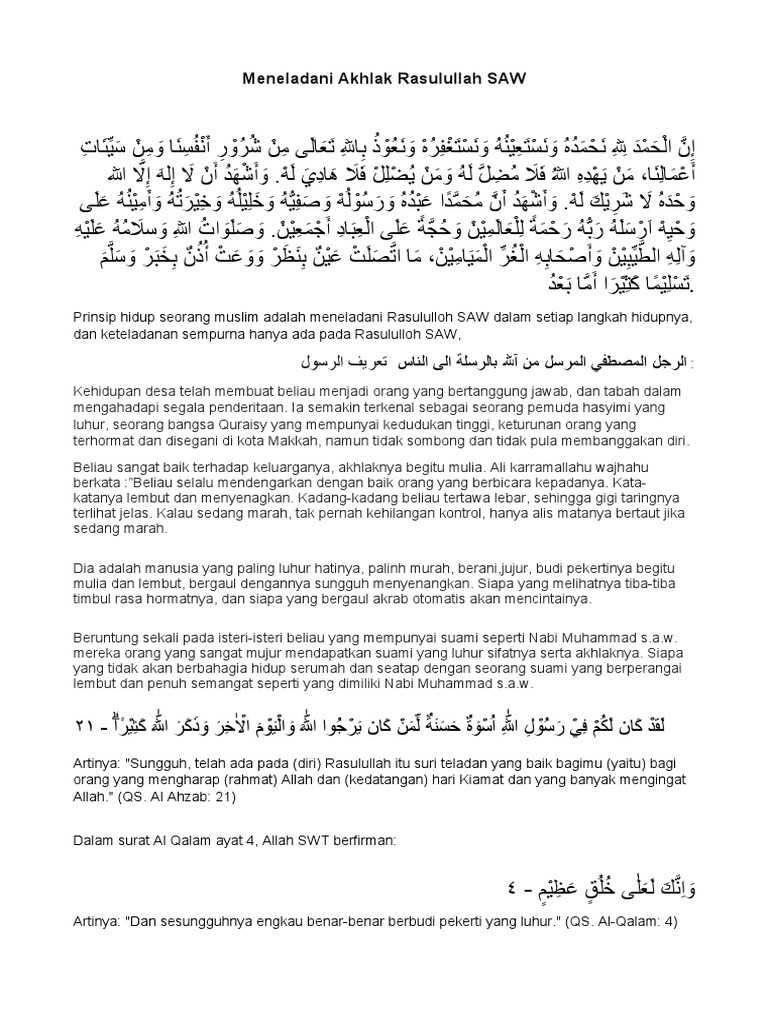 Meneladani Akhlak Rasulullah SAW
إِنَّ الْحَمْدَ لِلهِ نَحْمَدُهُ وَنَسْتَعِيْنُهُ وَنَسْتَغْفِرُهْ وَنَعُوْذُ بِاللهِ تَعَالَى مِنْ شُرُوْرِ أَنْفُسِنَا وَمِنْ سَيِّئَاتِ
أَعْمَالِنَا، مَنْ يَهْدِهِ اللهُ فَلَا مُضِلَّ لَهُ وَمَنْ يُضْلِلْ فَلَا هَادِيَ لَهْ. وَأَشْهَدُ أَنْ لَا إِلَهَ إِلَّا الله
وَحْدَهُ لَا شَرِيْكَ لَهْ. وَأَشْهَدُ أَنَّ مُحَمَّدًا عَبْدُهُ وَرَسُوْلُهْ وَصَفِيُّهُ وَخَلِيْلُهُ وَخِيْرَتُهُ وَأَمِيْنُهُ عَلَى
وَحْيِهْ اَرْسَلَهُ رَبُّهُ رَحْمَةً لِلْعَالَمِيْنْ وَحُجَّةً عَلَى الْعِبَادِ أَجْمَعِيْنْ. وَصَلَوَاتُ اللهِ وَسلَامُهُ عَلَيْهِ
وَآلِهِ الطَّيِّبِيْنْ وَأَصْحَابِهِ الْغُرِّ الْمَيَامِيْنْ، مَا اتَّصَلَتْ عَيْنٌ بِنَظَرْ وَوَعَتْ أُذُنٌ بِخَبَرْ وَسَلَّمَ
تَسْلِيْمًا كَثِيْرَا أَمَّا بَعْدُ.
Prinsip hidup seorang muslim adalah meneladani Rasululloh SAW dalam setiap langkah hidupnya,
dan keteladanan sempurna hanya ada pada Rasululloh SAW,
الرجل المصطفي المرسل من آلله بالرسلة الى الناس تعريف الرسول :
Kehidupan desa telah membuat beliau menjadi orang yang bertanggung jawab, dan tabah dalam
mengahadapi segala penderitaan. Ia semakin terkenal sebagai seorang pemuda hasyimi yang
luhur, seorang bangsa Quraisy yang mempunyai kedudukan tinggi, keturunan orang yang
terhormat dan disegani di kota Makkah, namun tidak sombong dan tidak pula membanggakan diri.
Beliau sangat baik terhadap keluarganya, akhlaknya begitu mulia. Ali karramallahu wajhahu
berkata :"Beliau selalu mendengarkan dengan baik orang yang berbicara kepadanya. Kata-
katanya lembut dan menyenagkan. Kadang-kadang beliau tertawa lebar, sehingga gigi taringnya
terlihat jelas. Kalau sedang marah, tak pernah kehilangan kontrol, hanya alis matanya bertaut jika
sedang marah.
Dia adalah manusia yang paling luhur hatinya, palinh murah, berani,jujur, budi pekertinya begitu
mulia dan lembut, bergaul dengannya sungguh menyenangkan. Siapa yang melihatnya tiba-tiba
timbul rasa hormatnya, dan siapa yang bergaul akrab otomatis akan mencintainya.
Beruntung sekali pada isteri-isteri beliau yang mempunyai suami seperti Nabi Muhammad s.a.w.
mereka orang yang sangat mujur mendapatkan suami yang luhur sifatnya serta akhlaknya. Siapa
yang tidak akan berbahagia hidup serumah dan seatap dengan seorang suami yang berperangai
lembut dan penuh semangat seperti yang dimiliki Nabi Muhammad s.a.w.
لَقَدْ كَانَ لَكُمْ فِيْ رَسُوْلِ اللّٰهِ اُسْوَةٌ حَسَنَةٌ لِّمَنْ كَانَ يَرْجُوا اللّٰهَ وَالْيَوْمَ الْاٰخِرَ وَذَكَرَ اللّٰهَ كَثِيْرًاۗ - ٢١
Artinya: "Sungguh, telah ada pada (diri) Rasulullah itu suri teladan yang baik bagimu (yaitu) bagi
orang yang mengharap (rahmat) Allah dan (kedatangan) hari Kiamat dan yang banyak mengingat
Allah." (QS. Al Ahzab: 21)
Dalam surat Al Qalam ayat 4, Allah SWT berfirman:
وَاِنَّكَ لَعَلٰى خُلُقٍ عَظِيْمٍ - ٤
Artinya: "Dan sesungguhnya engkau benar-benar berbudi pekerti yang luhur." (QS. Al-Qalam: 4)